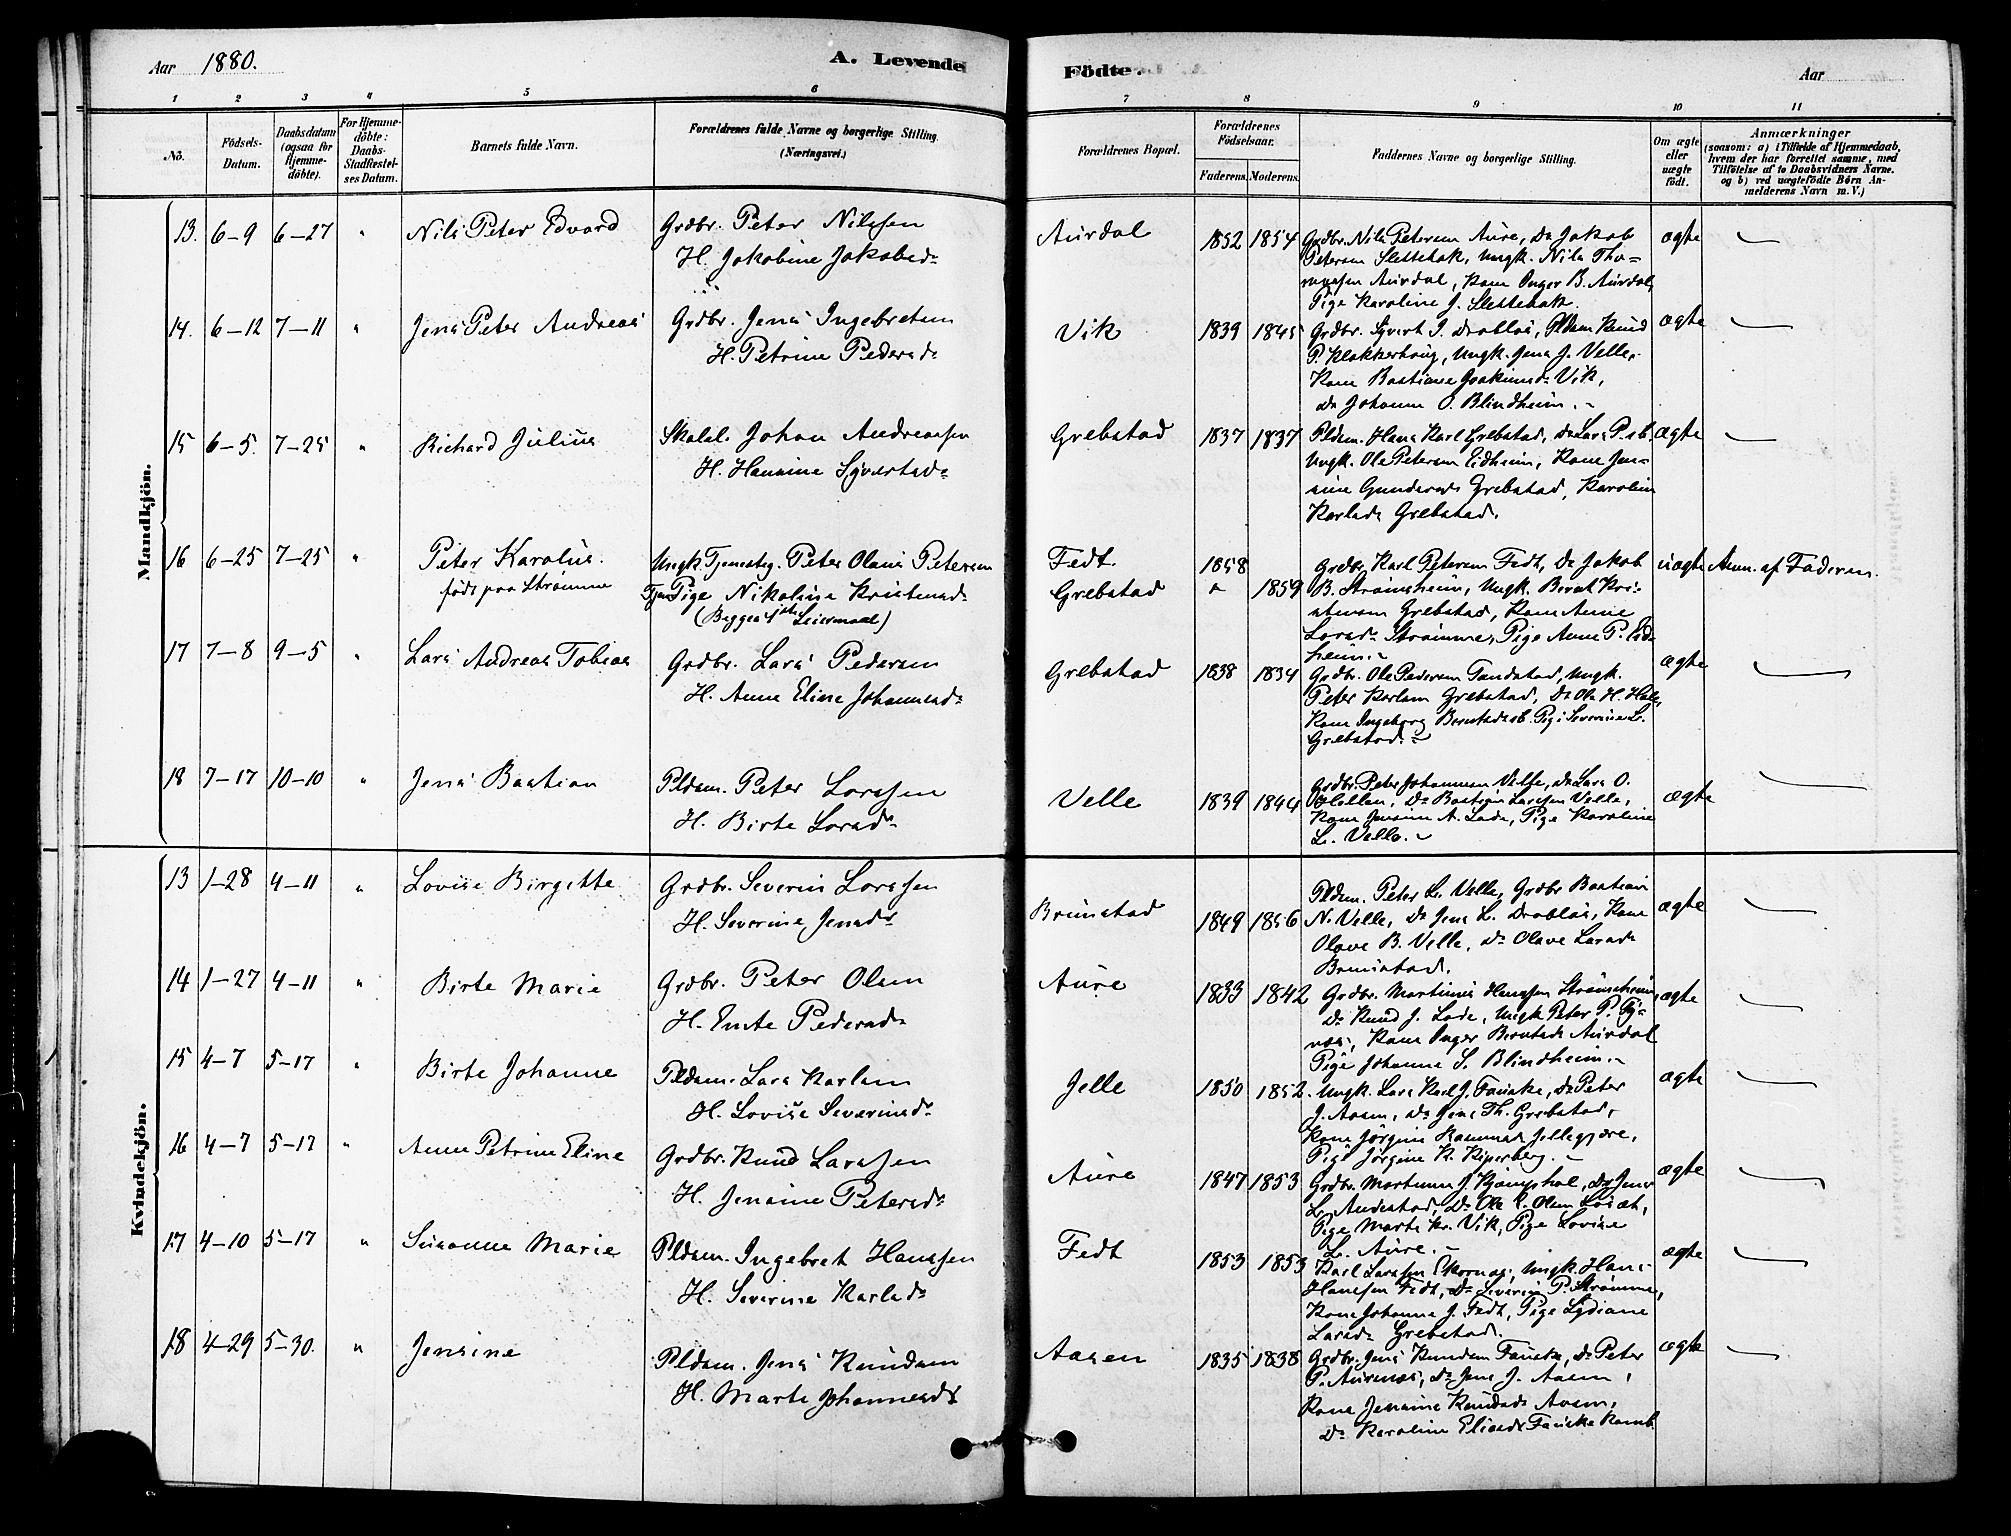 Aar 1880.
A. Levende
Födte.
Aar
1 2 3 4 5 6 7 8 9 10 11
No.
Födsels-
Datum.
Daabsdatum
(ogsaa for
Hjemme-
döbte).
For Hjemme-
döbte:
Daabs-
Stadfæstel-
ses Datum.
Barnets fulde Navn.
Forældrenes fulde Navne og borgerlige Stilling.
(Næringsvei.)
Forældrenes Bopæl.
Forældrenes
Födselsaar.
Faderens. Moderens.
Faddernes Navne og borgerlige Stilling.
Om ægte
eller
uægte
födt.
Anmærkninger
(saasom: a) i Tilfælde af Hjemmedaab,
hvem der har forrettet samme, med
Tilföielse af to Daabsvidners Navne.
og b) ved uægtefödte Börn An-
melderens Navn m. V.)
Mandkjön.
13. 6-9 6-27 " Nils Peter Edvard Grdbr. Peter Nilssen
H. Jakobine Jakobsd.
Aurdal 1852 1854 Grdbr. Nils Petersen Aure, Do Jakob
Petersen Slettebak, Ungk. Nils Tho-
massen Aurdal, Kone Inger B. Aurdal,
Pige Karoline J. Slettebak.
ægte
14. 6-12 7-11 " Jens Peter Andreas Grdbr. Jens Ingebretsen
H. Petrine Pedersd.
Vik 1839 1845 Grdbr. Syvert I. Drabløs, Pldsm. Knud
P. Klokkerhaug, Ungk. Jens J. Velle,
Kone Bastiane Joakimsd. Vik,
Do Johanne O. Blindheim.
ægte
15 6-5. 7-25 " Richard Julius Skolel. Johan Andreassen
H. Hansine Syvertsd.
Grebstad 1837 1837 Pldsm. Hans Karl Grebstad, Do Lars P. sb.
Ungk. Ole Petersen Eidheim, Kone Jen-
sine Gundersd. Grebstad, Karoline
Karlsd. Grebstad.
ægte
16 6-25 7-25 " Peter Karolus.
født paa Strømme
Ungk. Tjenestg. Peter Olaus Petersen
Tjen Pige Nikoline Kristensd.
(Begges 1ste Leiermaal)
Fedt. 1858
Grebstad " 1859
Grdbr. Karl Petersen Fedt, Do Jakob
B. Strømsheim, Ungk. Bernt Kri-
stensen Grebstad, Kone Anne
Larsd. Strømme, Pige Anne P. Eid-
heim.
uægte Anm. af Faderen.
17 7-8 9-5 " Lars Andreas Tobias Grdbr. Lars Pedersen
H. Anne Eline Johannesd.
Grebstad 1838 1834 Grdbr. Ole Pedersen Tandstad, Ungk.
Peter Karlsen Grebstad, Do Ole H. Hole,
Kone Ingeborg Berntsd. sb. Pige Severine L.
Grebstad.
ægte
18 7-17 10-10 " Jens Bastian Pldsm. Peter Larssen
H. Birte Larsd.
Velle 1839 1844 Grdbr. Peter Johannessen Velle, Do Lars O.
Do Bastian Larssen Velle,
Kone Jensine A. Lade, Pige Karoline
L. Velle.
ægte
Kvindekjön.
13 1-28 4-11 " Lovise Birgitte Grdbr. Severin Larssen
H. Severine Jensd.
Brunstad 1849 1856 Pldsm. Peter L. Velle, Grdbr Bastian
N. Velle, Do Jens L. Drabløs, Kone
Olave B. Velle, Do Olave Larsd.
Brunstad.
ægte
14 1-27 4-11 " Birte Marie Grdbr. Peter Olsen
H. Emte Pedersd.
Aure 1833 1842 Grdbr. Martinus Hanssen Strømsheim,
Do Knud J. Lade, Ungk Peter P. Ty-
nes, Kone Inger Berntsd. Aurdal
Pige Johanne S. Blindheim.
ægte
15 4-7 5-17 " Birte Johanne Pldsm. Lars Karlsen
H. Lovise Severinsd.
Jelle 1850 1852. Ungk. Lars Karl J. Fauske, Do Peter
J. Aasen, Do Jens Th. Grebstad,
Kone Jørgine Rasmusd. Jellegjære,
Pige Jørgine K. Kiperberg.
ægte
16 4-7 5-17 " Anne Petrine Eline Grdbr. Knud Larssen
H. Jensine Petersd.
Aure 1847 1853 Grdbr. Martinus J. Kjemphol, Do Jens
L. Andestad, Do Ole E. Olsen
Pige Marte Kr. Vik, Pige Lovise
L. Aure.
ægte
17 4-10 5-17 " Susanne Marie Pldsm. Ingebret Hanssen
H. Severine Karlsd.
Fedt 1853 1853 Karl Larssen Ekornæs, Ungk. Hans
Hanssen Fedt, Do Severin P. Strømme,
Kone Johanne J. Fedt, Pige Lydiane
Larsd. Grebstad.
ægte
18 4-29 5-30. " Jensine Pldsm. Jens Knudsen
H. Marte Johannesd.
Aasen 1835 1838 Grdbr. Jens Knudsen Fauske, Do Peter
P. Aurenæs, Do Jens J. Aasen,
Kone Jensine Knudsd. Aasen,
Do Karoline Eliasd. Fauske
ægte